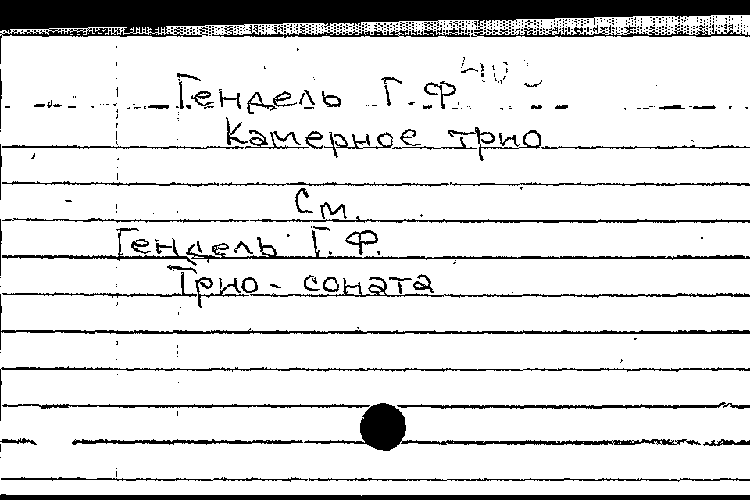 Гендель Г.Ф.
Камерное трио
См.
Гендель Г.Ф.
Трио-соната